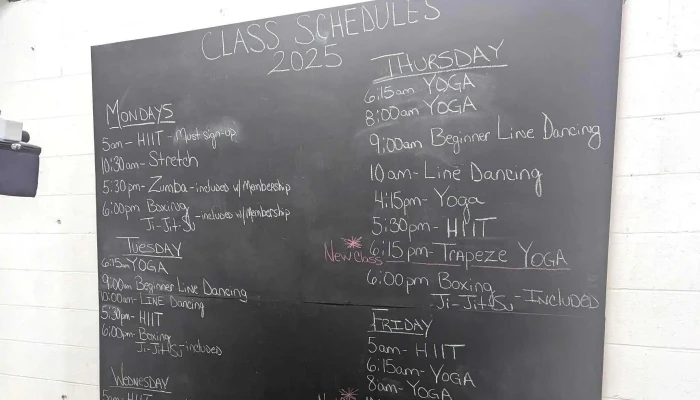 CLASS SCHEDULES
2025
MONDAYS
5am - HIIT - Must sign-up
10:30am - Stretch
5:30pm - Zumba - included w/ Membership
6:00pm Boxing
Ji-Jitsu - included w/ Membership
TUESDAY
6:15am YOGA
9:00am Beginner Line Dancing
10:00am - LINE Dancing
5:30pm - HIIT
6:00pm - Boxing
Ji-Jitsu - included
WEDNESDAY
5am - HIIT
THURSDAY
6:15am YOGA
8:00am YOGA
9:00am Beginner Line Dancing
10am - Line Dancing
4:15pm - Yoga
5:30pm - HIIT
New Class 6:15pm - Trapeze YOGA
6:00pm Boxing
Ji-Jitsu - INCLUDED
FRIDAY
5am - HIIT
6:15am - YOGA
8am - YOGA